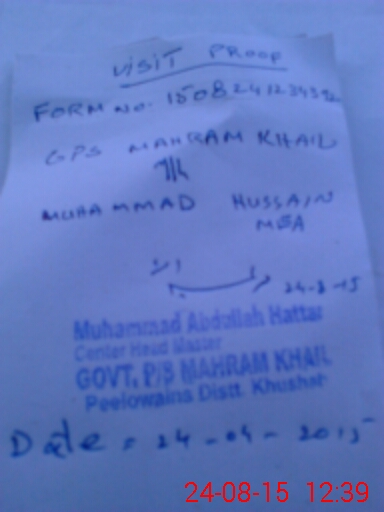 VISIT PROOF
FORM NO. 15082412343
GPS MAHRAM KHAIL
MUHAMMAD HUSSAIN
MEA
24-8-15
Muhammad Abdallah Hattar
Center Head Master
GOVT. P/S MAHRAM KHAIL
Peelowains Distt. Khushab
Date = 24-04-2015
24-08-15 12:39